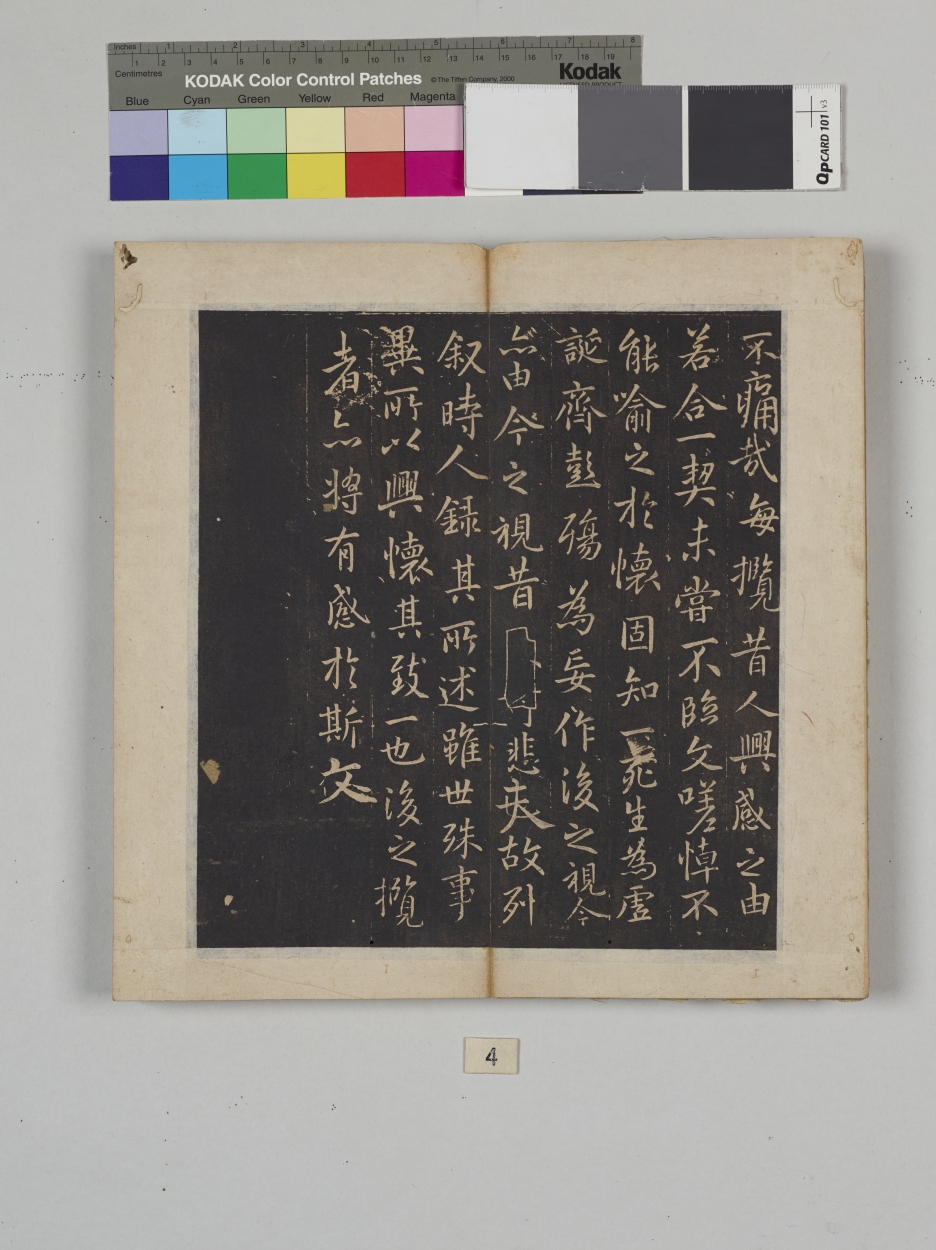 Inches 1 2 3 4 5 6 7 8
Centimetres 1 2 3 4 5 6 7 8 9 10 11 12 13 14 15 16 17 18 19
KODAK Color Control Patches © The Tiffen Company, 2000 Kodak
LICENSED PRODUCT
Blue Cyan Green Yellow Red Magenta
QPCARD 101 v3
不痛哉每攬昔人興感之由
若合一契未嘗不臨文嗟悼不
能喻之於懷固知一死生為虛
誕齊彭殤為妄作後之視今
亦由今之視昔悲夫故列
叙時人錄其所述雖世殊事
異所以興懷其致一也後之攬
者亦將有感於斯文
4